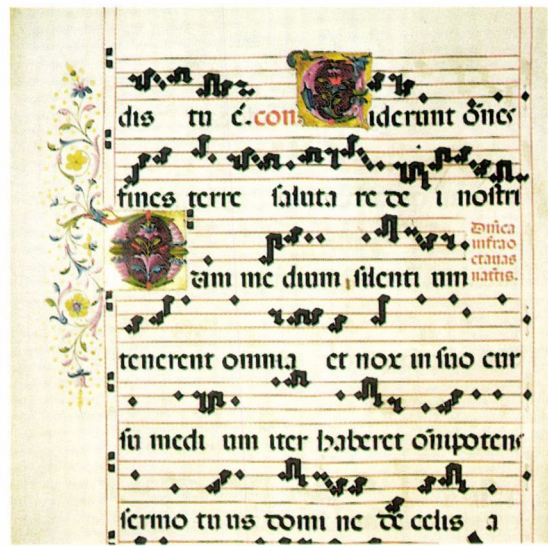 dis tu é. con Viderunt oñes
fines terre saluta re de i nostri
Dñica
infrao
ctauas
natiis.
Dum me dium silenti um
tenerent omnia et nox in suo cur
su medi um iter haberet oñipotens
sermo tu us domi ne de celis a